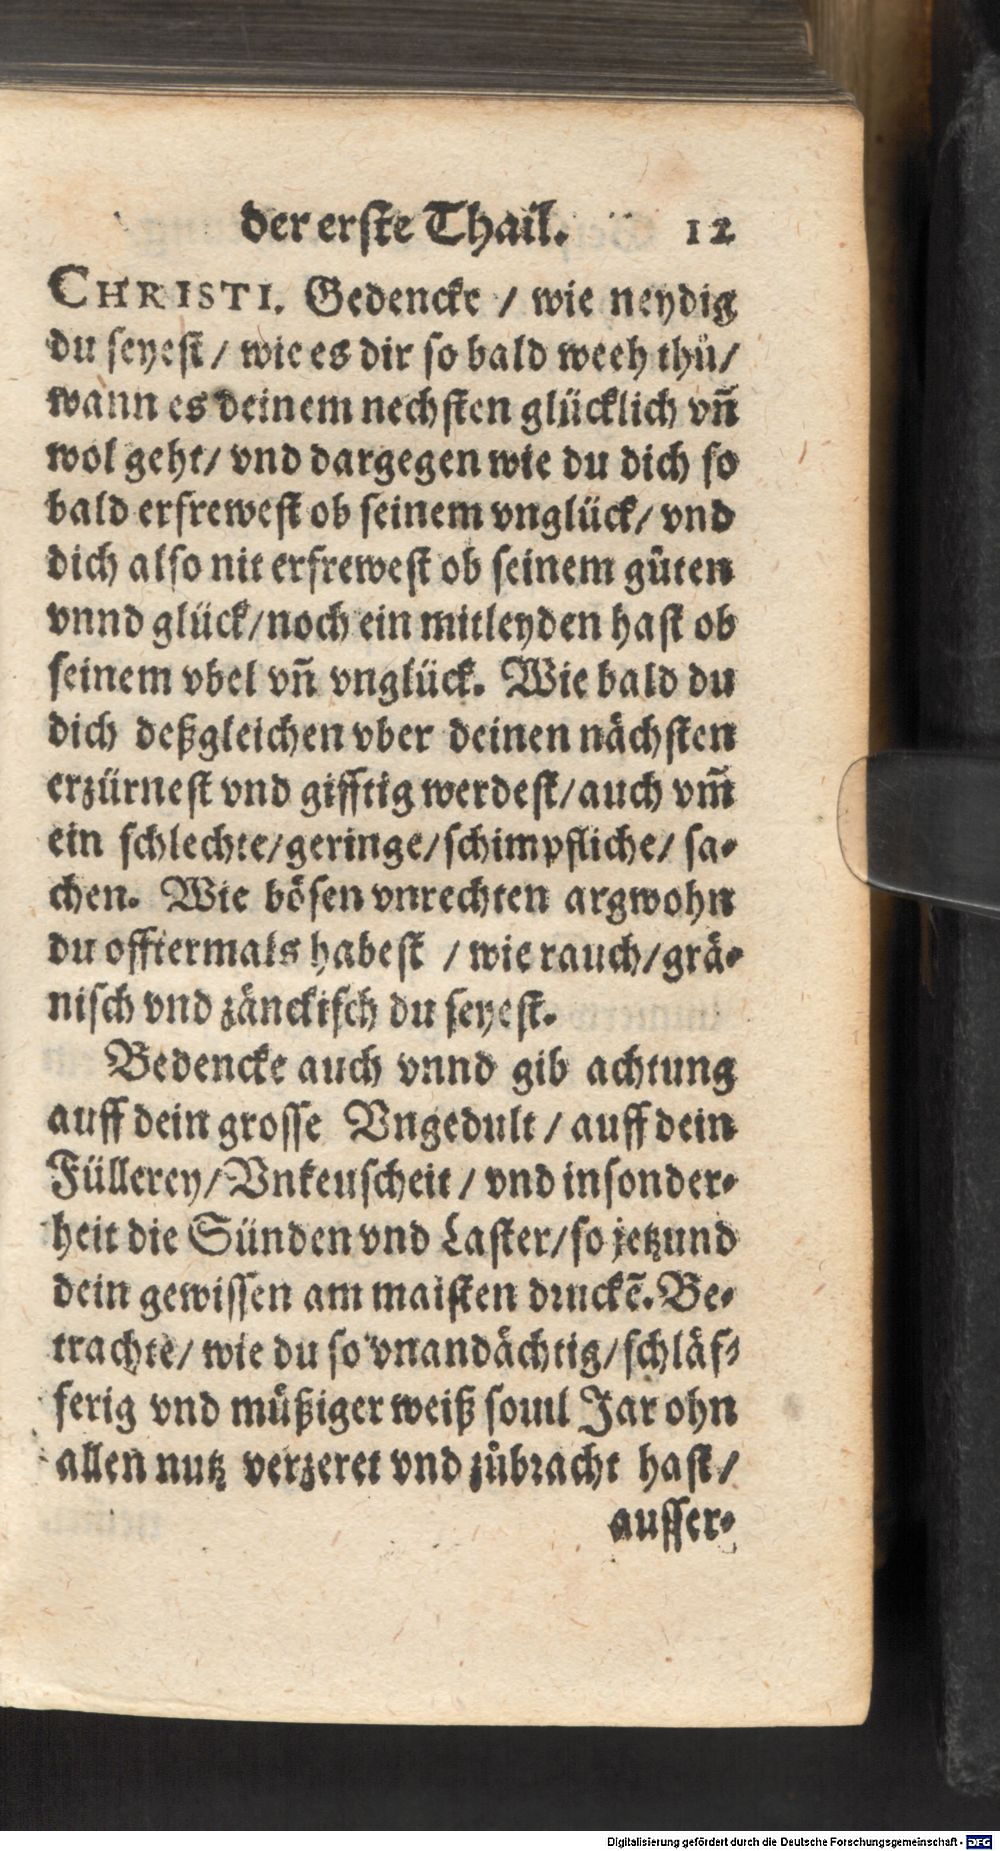 der erste Thail. 12
CHRISTI. Gedencke / wie neydig
du seyest / wie es dir so bald weeh thů /
wann es deinem nechsten glücklich vñ
wol geht / vnd dargegen wie du dich so
bald erfrewest ob seinem vnglück / vnd
dich also nit erfrewest ob seinem gůten
vnnd glück / noch ein mitleyden hast ob
seinem vbel vñ vnglück. Wie bald du
dich deßgleichen vber deinen nächsten
erzürnest vnd gifftig werdest / auch vm̃
ein schlechte / geringe / schimpfliche / sa-
chen. Wie bösen vnrechten argwohn
du offtermals habest / wie rauch / grä-
nisch vnd zänckisch du seyest.
Bedencke auch vnnd gib achtung
auff dein grosse Vngedult / auff dein
Füllerey / Vnkeuscheit / vnd insonder-
heit die Sünden vnd Laster / so jetzund
dein gewissen am maisten druckẽ. Be-
trachte / wie du so vnandächtig / schläf-
ferig vnd můßiger weiß souil Jar ohn
allen nutz verzeret vnd zůbracht hast /
ausser-
Digitalisierung gefördert durch die Deutsche Forschungsgemeinschaft - DFG